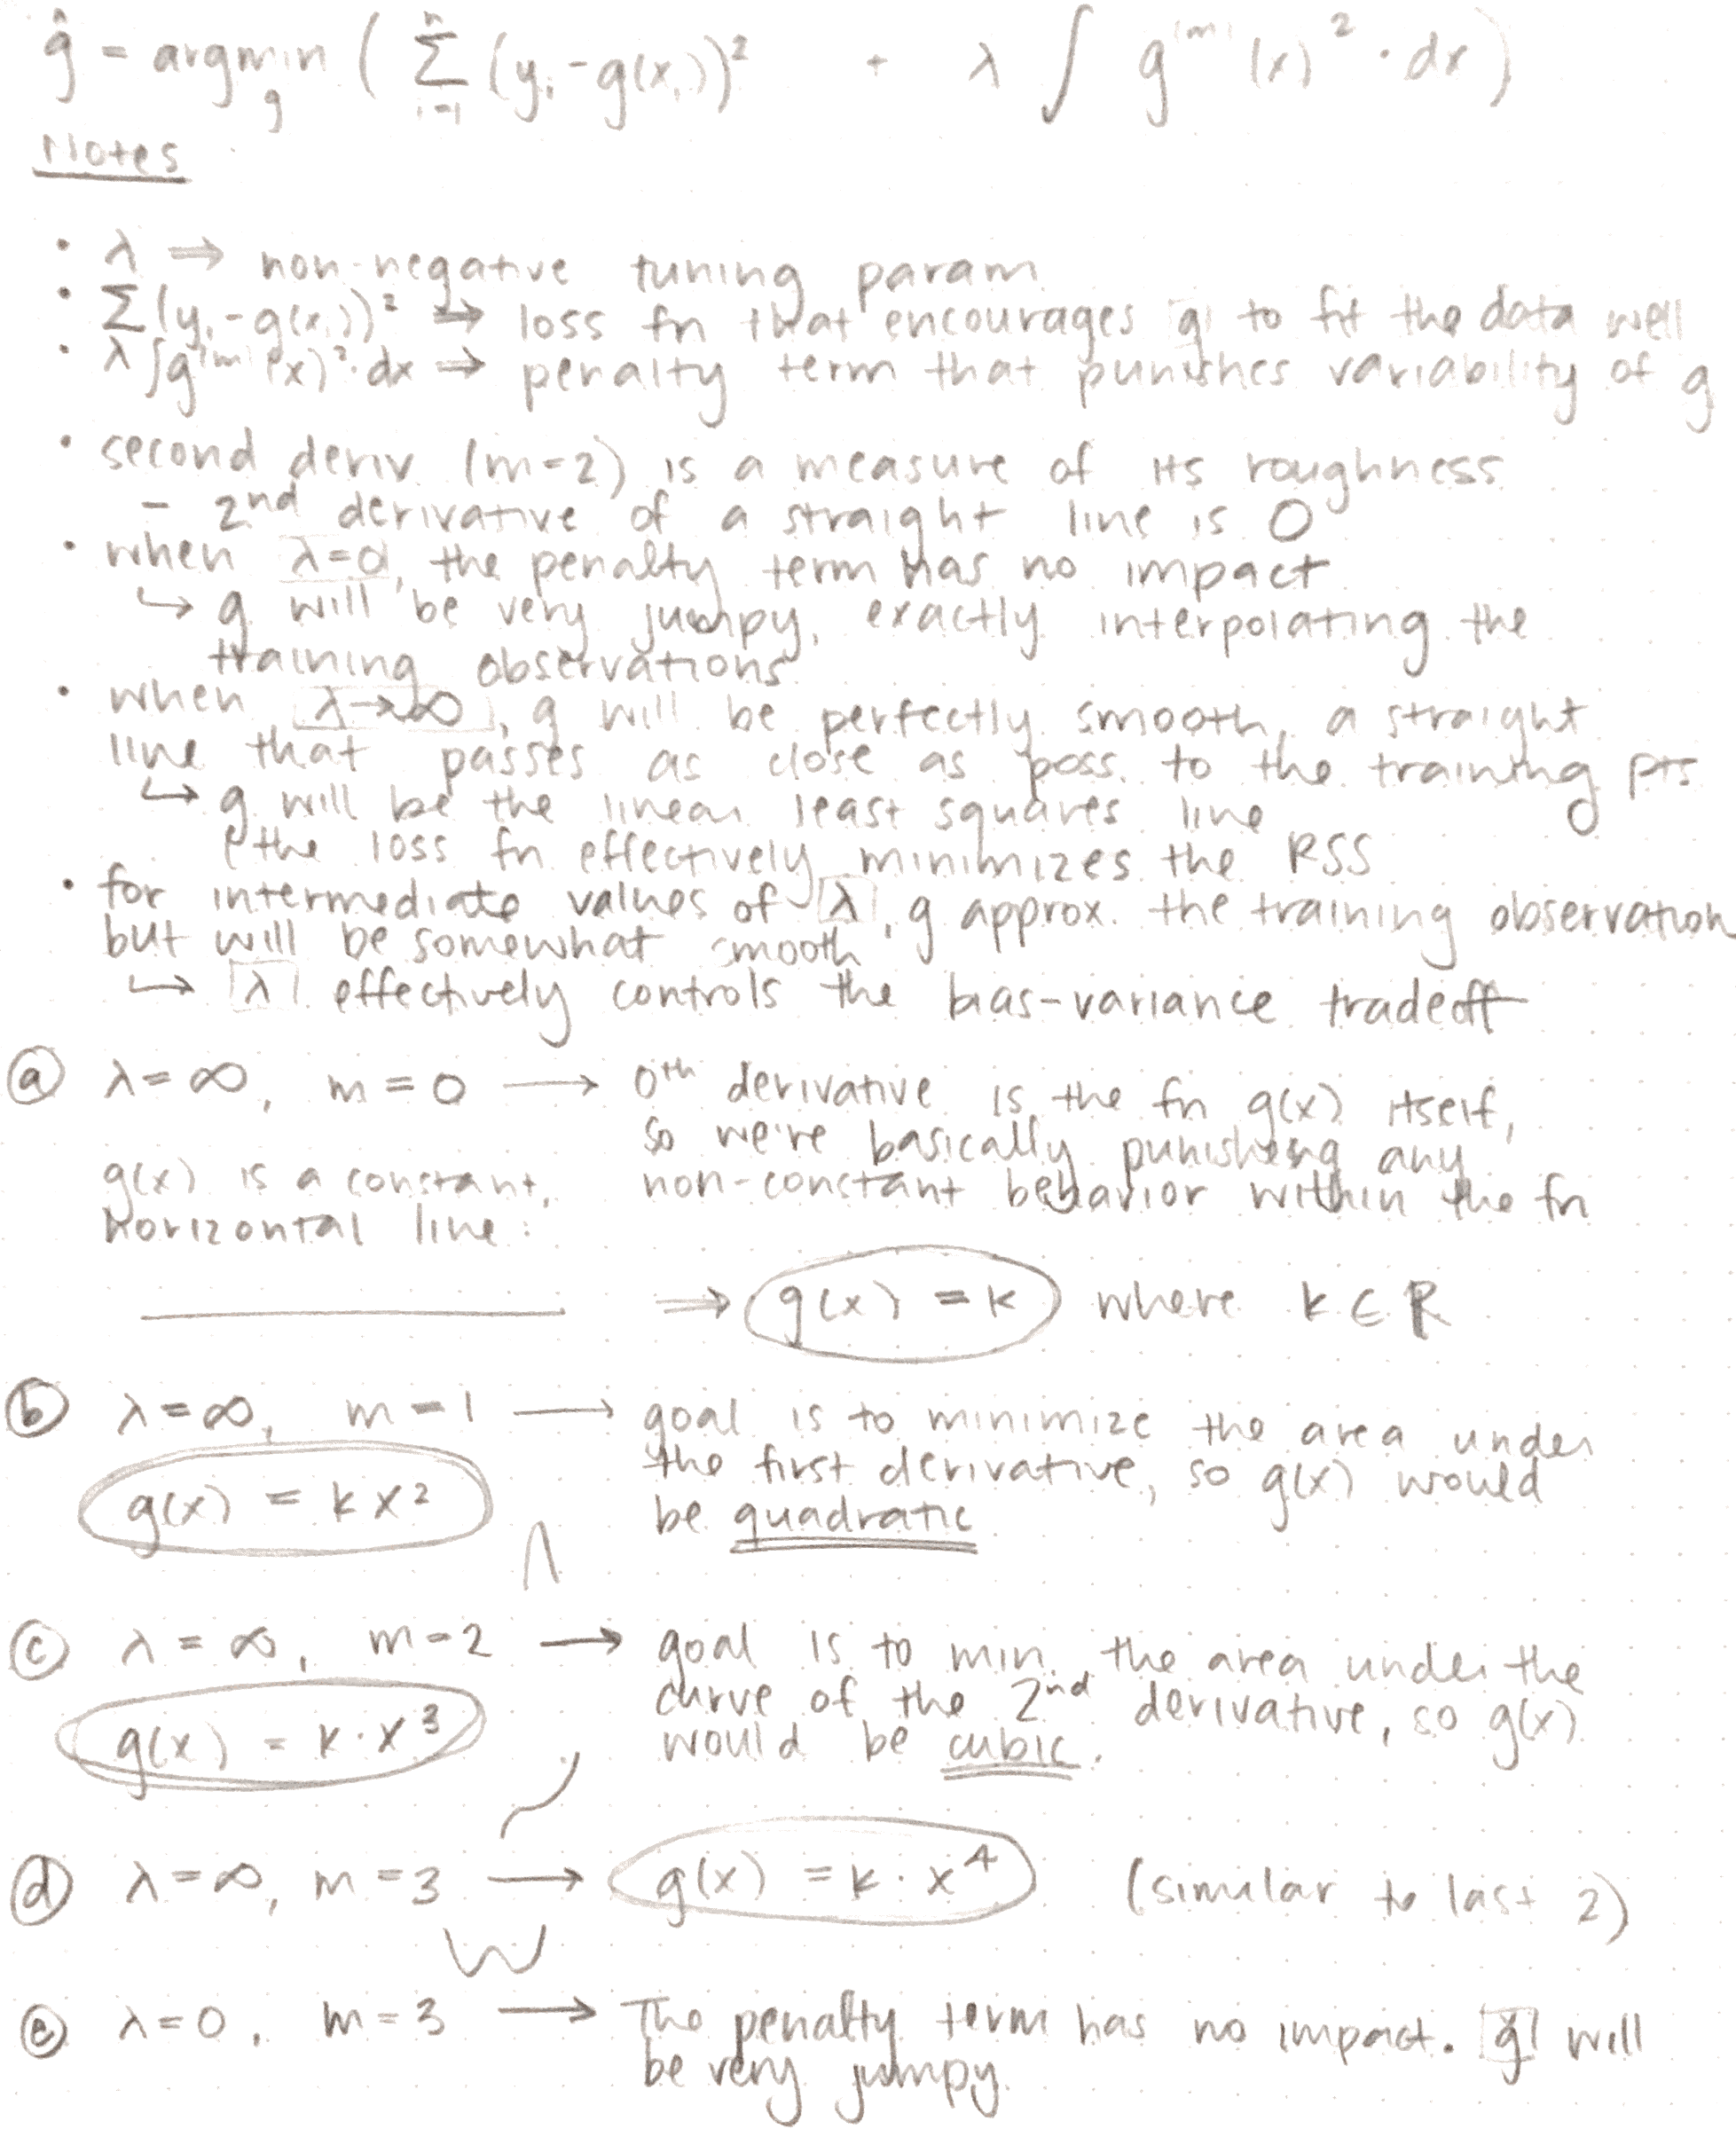 ĝ = argmin_g ( Σ_{i=1}^{n} (y_i - g(x_i))² + λ ∫ g^(m) (x)² · dx )
Notes
• λ ⇒ non-negative tuning param
• Σ(y_i - g(x_i))² ⇒ loss fn that encourages g to fit the data well
• λ ∫g^(m) (x)² · dx ⇒ penalty term that punishes variability of g
• second deriv. (m=2) is a measure of its roughness
- 2nd derivative of a straight line is 0
• when λ=0, the penalty term has no impact
↳ g will be very jumpy, exactly interpolating the
training observations
• when λ→∞, g will be perfectly smooth, a straight
line that passes as close as poss. to the training pts
↳ g will be the linear least squares line
the loss fn effectively minimizes the RSS
• for intermediate values of λ, g approx. the training observation
but will be somewhat smooth
↳ λ effectively controls the bias-variance tradeoff
ⓐ λ = ∞, m = 0 → 0th derivative is the fn g(x) itself,
so we're basically punishing any
non-constant behavior within the fn
g(x) is a constant,
horizontal line:
⇒ g(x) = k where k ∈ R
ⓑ λ = ∞, m = 1 → goal is to minimize the area under
the first derivative, so g(x) would
be quadratic
g(x) = k x²
ⓒ λ = ∞, m = 2 → goal is to min. the area under the
curve of the 2nd derivative, so g(x)
would be cubic.
g(x) = k · x³
ⓓ λ = ∞, m = 3 → g(x) = k · x⁴ (similar to last 2)
ⓔ λ = 0, m = 3 → The penalty term has no impact. g will
be very jumpy.